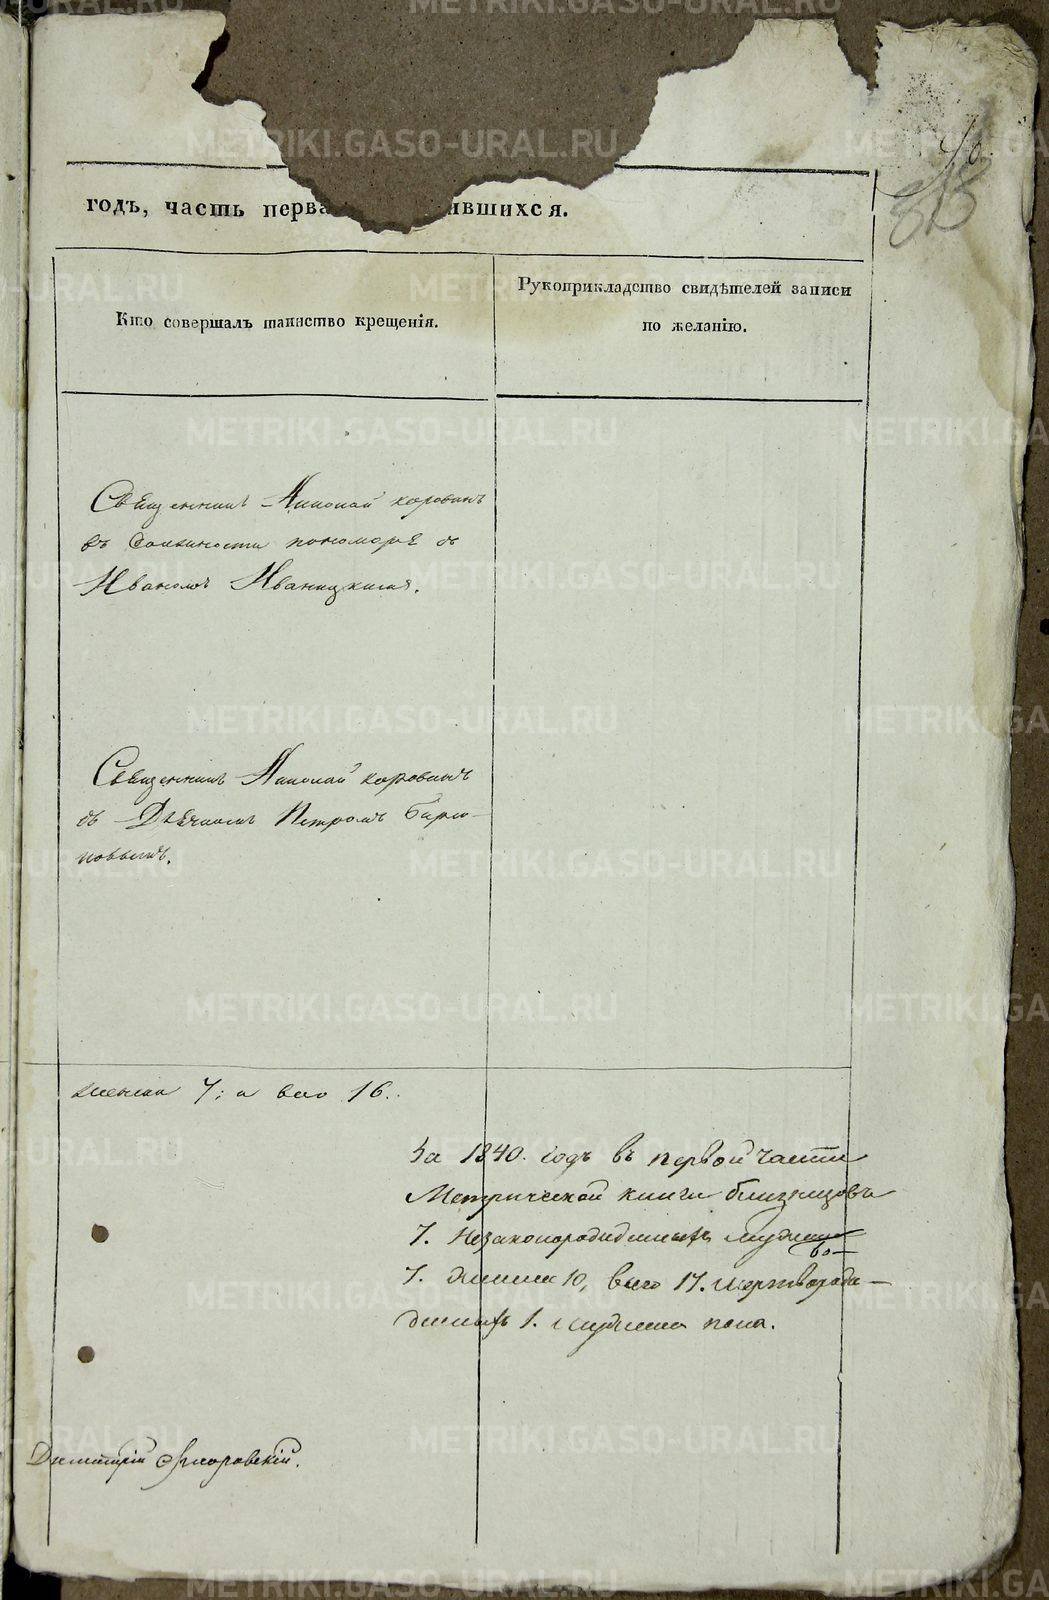 годъ, часть перва вшихся.
Кто совершалъ таинство крещенія.
Рукоприкладство свидѣтелей записи
по желанію.
Священникъ Николай Коровинъ
въ должности пономаря съ
Иваномъ Иваницкимъ.
Священникъ Николай Коровинъ
съ Дьячкомъ Петромъ Бирю-
ковымъ.
женска 7; а всего 16.
За 1840. годъ въ первой части
Метрической книги близнецовъ
7. Незаконорожденныхъ мужска
7. женска 10, всего 17. мертворож-
денныхъ 1. мужска пола.
Димитрій
METRIKI.GASO-URAL.RU